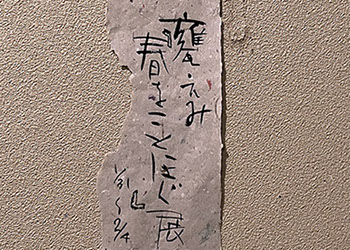 甕えみ
春をことほぐ展
1/31〜2/4